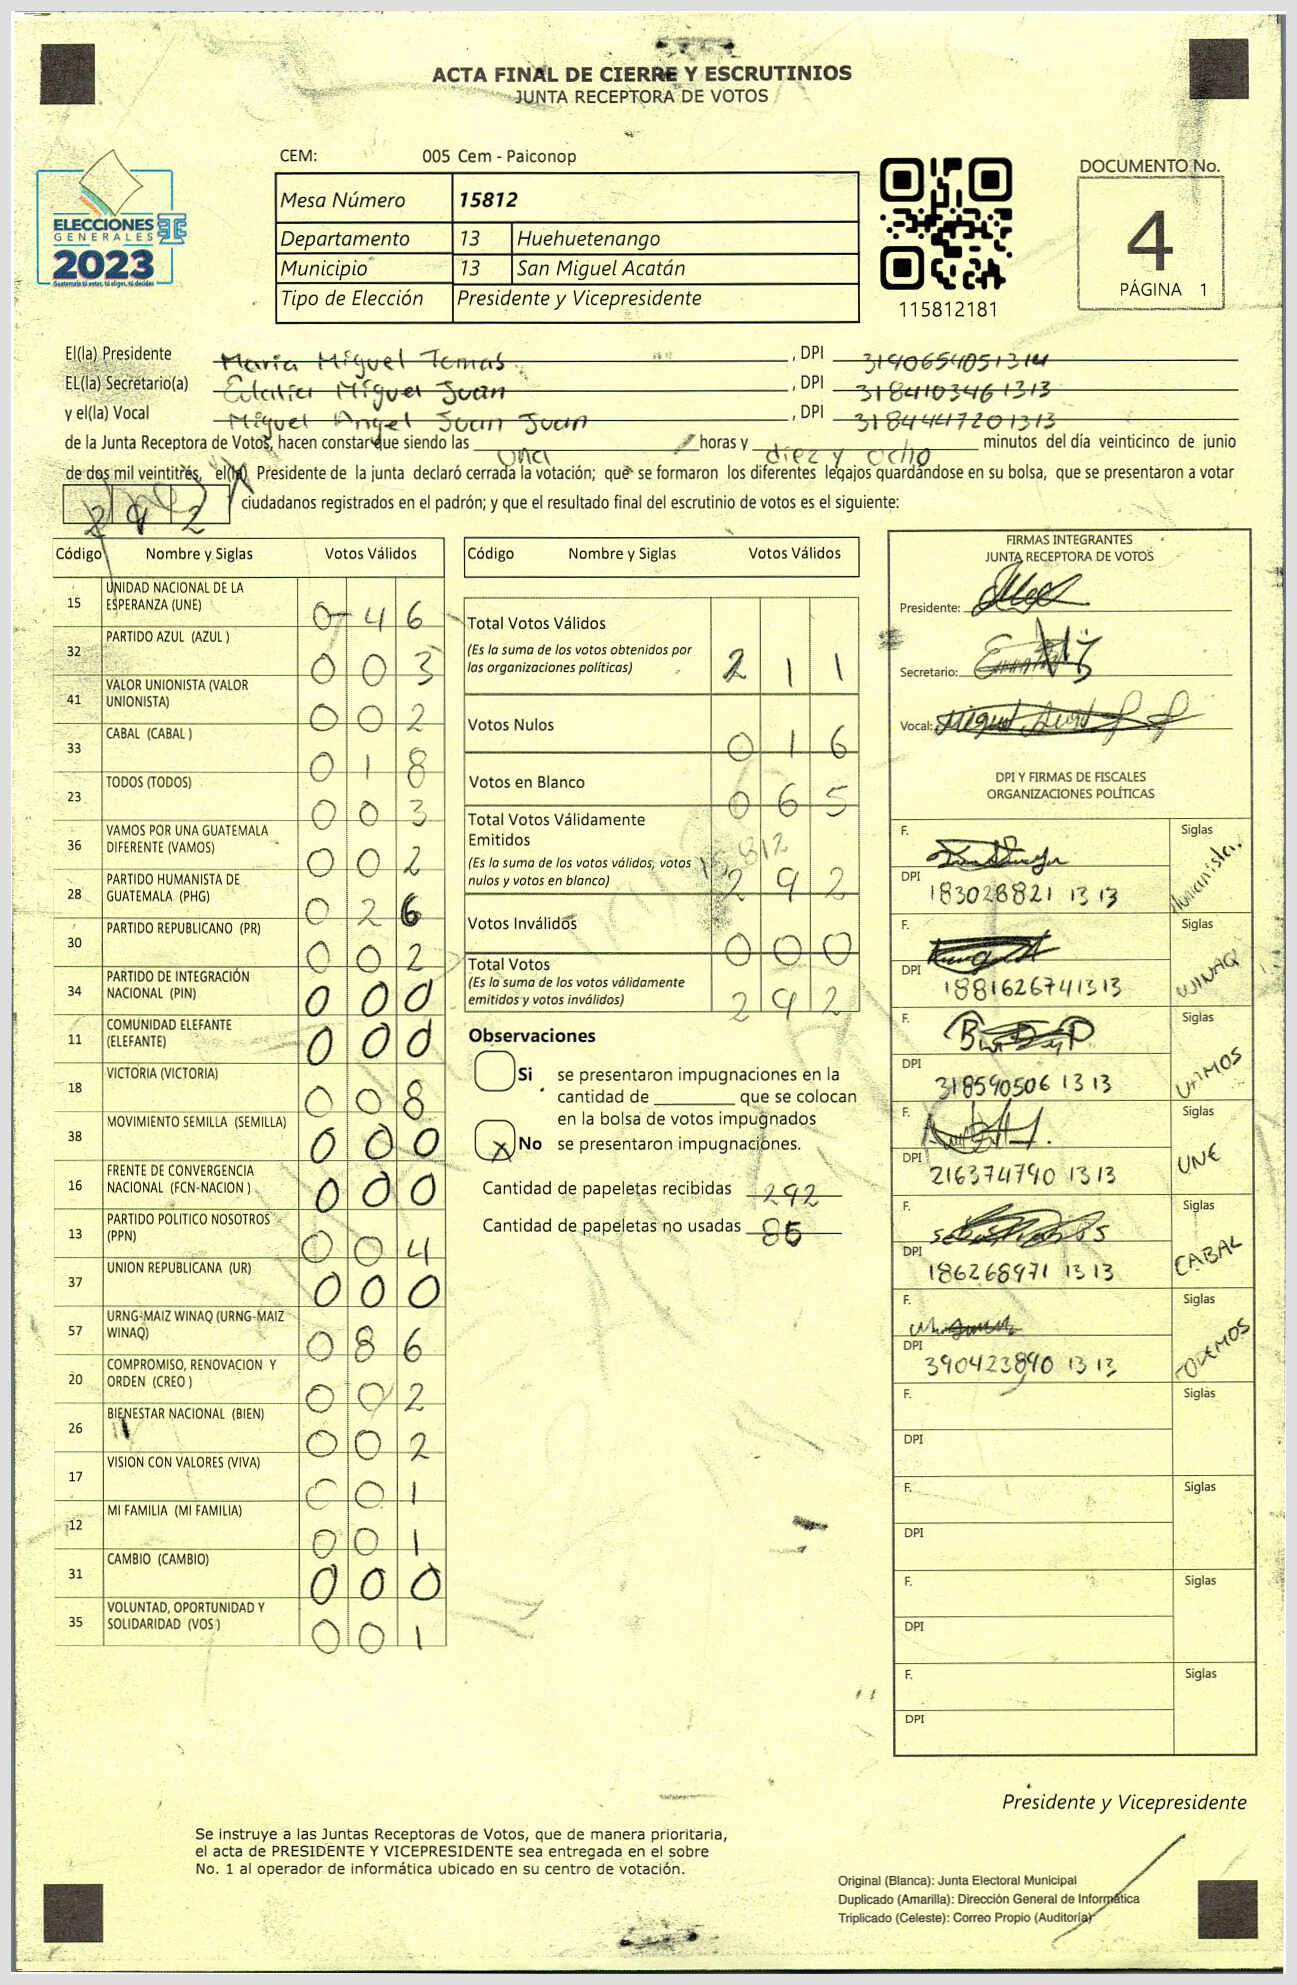 ACTA FINAL DE CIERRE Y ESCRUTINIOS
JUNTA RECEPTORA DE VOTOS
CEM: 005 Cem - Paiconop
Mesa Número 15812
Departamento 13 Huehuetenango
Municipio 13 San Miguel Acatán
Tipo de Elección Presidente y Vicepresidente
ELECCIONES
GENERALES
2023
Guatemala tú votas, tú eliges, tú decides
115812181
DOCUMENTO No.
4
PÁGINA 1
El(la) Presidente Maria Miguel Tomas , DPI 3190654051314
EL(la) Secretario(a) Eulalia Miguel Juan , DPI 3184103461313
y el(la) Vocal Miguel Angel Juan Juan , DPI 3184447201313
de la Junta Receptora de Votos, hacen constar que siendo las una horas y diez y ocho minutos del día veinticinco de junio
de dos mil veintitrés, el(la) Presidente de la junta declaró cerrada la votación; que se formaron los diferentes legajos guardándose en su bolsa, que se presentaron a votar
292 ciudadanos registrados en el padrón; y que el resultado final del escrutinio de votos es el siguiente:
Código Nombre y Siglas Votos Válidos
15 UNIDAD NACIONAL DE LA ESPERANZA (UNE) 0 4 6
32 PARTIDO AZUL (AZUL ) 0 0 3
41 VALOR UNIONISTA (VALOR UNIONISTA) 0 0 2
33 CABAL (CABAL ) 0 1 8
23 TODOS (TODOS) 0 0 3
36 VAMOS POR UNA GUATEMALA DIFERENTE (VAMOS) 0 0 2
28 PARTIDO HUMANISTA DE GUATEMALA (PHG) 0 2 6
30 PARTIDO REPUBLICANO (PR) 0 0 2
34 PARTIDO DE INTEGRACIÓN NACIONAL (PIN) 0 0 0
11 COMUNIDAD ELEFANTE (ELEFANTE) 0 0 0
18 VICTORIA (VICTORIA) 0 0 8
38 MOVIMIENTO SEMILLA (SEMILLA) 0 0 0
16 FRENTE DE CONVERGENCIA NACIONAL (FCN-NACION ) 0 0 0
13 PARTIDO POLITICO NOSOTROS (PPN) 0 0 4
37 UNION REPUBLICANA (UR) 0 0 0
57 URNG-MAIZ WINAQ (URNG-MAIZ WINAQ) 0 8 6
20 COMPROMISO, RENOVACION Y ORDEN (CREO ) 0 0 2
26 BIENESTAR NACIONAL (BIEN) 0 0 2
17 VISION CON VALORES (VIVA) 0 0 1
12 MI FAMILIA (MI FAMILIA) 0 0 1
31 CAMBIO (CAMBIO) 0 0 0
35 VOLUNTAD, OPORTUNIDAD Y SOLIDARIDAD (VOS ) 0 0 1
Código Nombre y Siglas Votos Válidos
Total Votos Válidos 2 1 1
(Es la suma de los votos obtenidos por
las organizaciones políticas)
Votos Nulos 0 1 6
Votos en Blanco 0 6 5
Total Votos Válidamente
Emitidos 2 9 2
(Es la suma de los votos válidos, votos
nulos y votos en blanco)
Votos Inválidos 0 0 0
Total Votos 2 9 2
(Es la suma de los votos válidamente
emitidos y votos inválidos)
Observaciones
Si se presentaron impugnaciones en la
cantidad de ________ que se colocan
en la bolsa de votos impugnados
X No se presentaron impugnaciones.
Cantidad de papeletas recibidas 292
Cantidad de papeletas no usadas
FIRMAS INTEGRANTES
JUNTA RECEPTORA DE VOTOS
Presidente:
Secretario:
Vocal:
DPI Y FIRMAS DE FISCALES
ORGANIZACIONES POLÍTICAS
F. Siglas Humanista
DPI 183028821 13 13
F. Siglas WINAQ
DPI 1881626741313
F. Siglas VAMOS
DPI 318590506 13 13
F. Siglas UNE
DPI 216374790 13 13
F. Siglas CABAL
DPI 186268971 13 13
F. Siglas TODEMOS
DPI 390423890 13 13
F. Siglas
DPI
F. Siglas
DPI
F. Siglas
DPI
F. Siglas
DPI
Presidente y Vicepresidente
Se instruye a las Juntas Receptoras de Votos, que de manera prioritaria,
el acta de PRESIDENTE Y VICEPRESIDENTE sea entregada en el sobre
No. 1 al operador de informática ubicado en su centro de votación.
Original (Blanca): Junta Electoral Municipal
Duplicado (Amarilla): Dirección General de Informática
Triplicado (Celeste): Correo Propio (Auditoría)